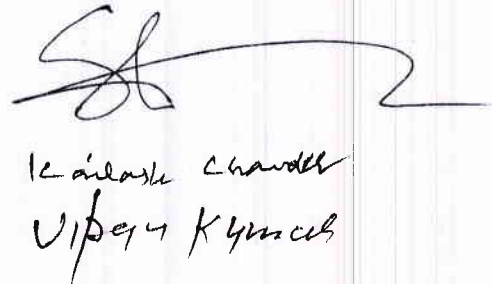 Kailash Chander
Vipan Kumar